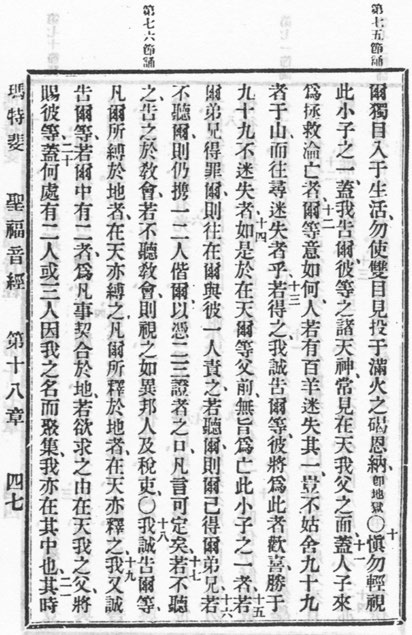 第七五節誦
第七六節誦
爾獨目入于生活、勿使雙目見投于滿火之碣恩納即地獄〇十慎勿輕視
此小子之一、蓋我告爾彼等之諸天神、常見在天我父之面、十一蓋人子來
爲拯救淪亡者、十二爾等意如何、人若有百羊迷失其一、豈不姑舍九十九
者于山而往尋迷失者乎、十三若得之、我誠告爾等彼將爲此者歡喜、勝于
九十九不迷失者、十四如是於在天爾等父前、無旨爲亡此小子之一者、十五若
爾弟兄得罪爾、則往在爾與彼一人責之、若聽爾、則爾已得爾弟兄、十六若
不聽爾、則仍攜一二人偕爾、以憑二三證者之口、凡言可定矣、十七若不聽
之、告之於敎會、若不聽敎會、則視之如異邦人及稅吏、〇十八我誠告爾等、
凡爾所縛於地者、在天亦縛之、凡爾所釋於地者、在天亦釋之、十九我又誠
告爾等、若爾中有二者、爲凡事契合於地、若欲求之、由在天我之父、將
賜彼等、二十蓋何處有二人或三人、因我之名而聚集、我亦在其中也、二一其時
瑪特斐 聖福音經 第十八章 四七